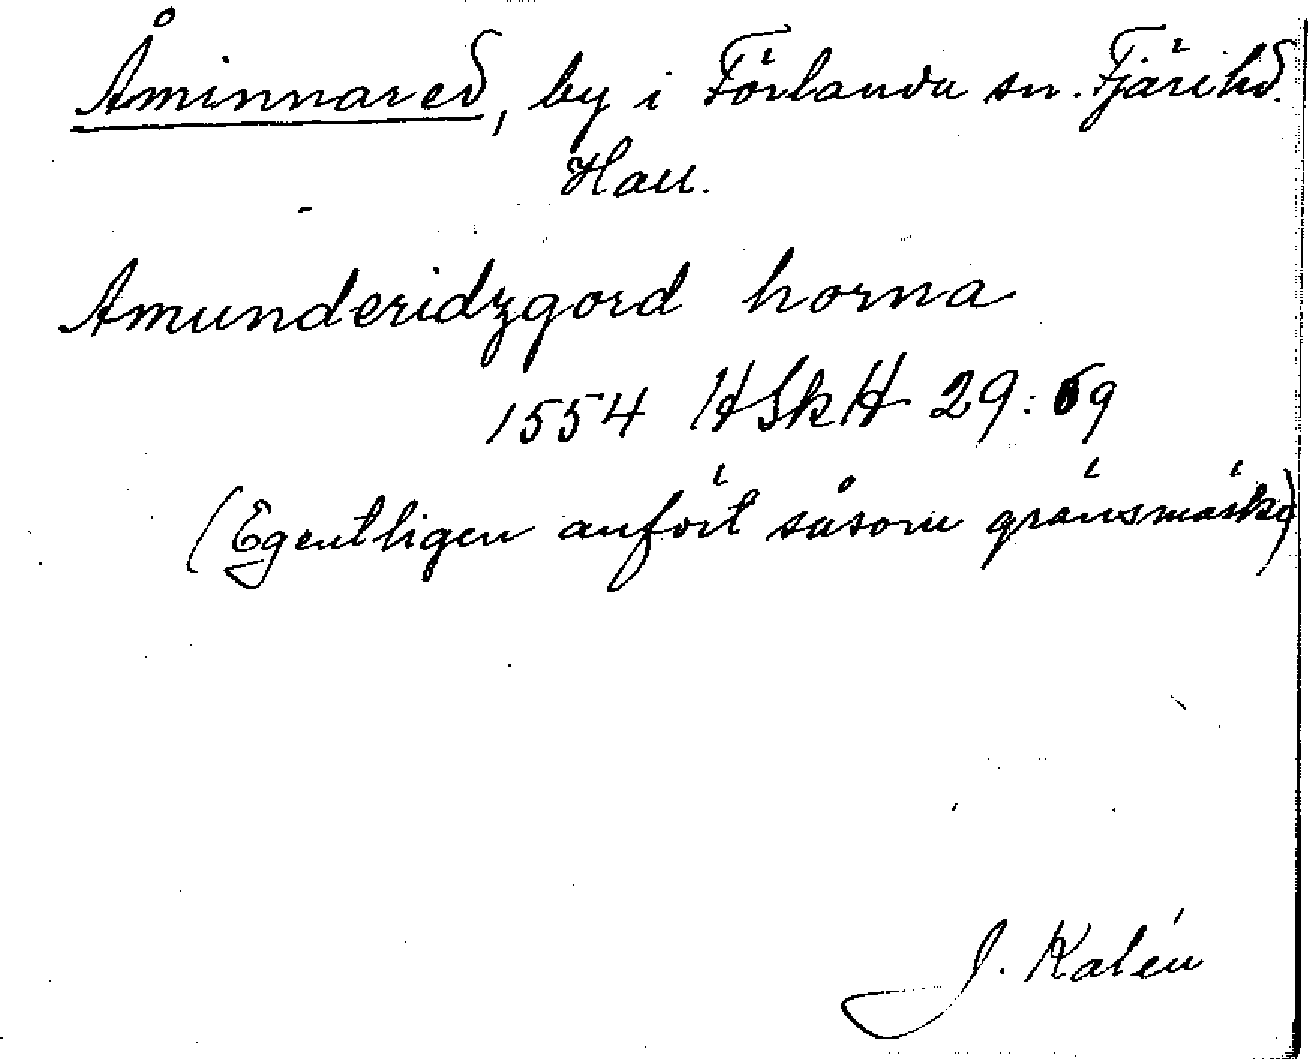 Åminnared, by i Förlanda sn. Fjäre hd.
Hall.
Amunderidzgord horna
1554 HSkH 29: 69
(Egentligen anfört såsom gränsmärke)
J. Kalén